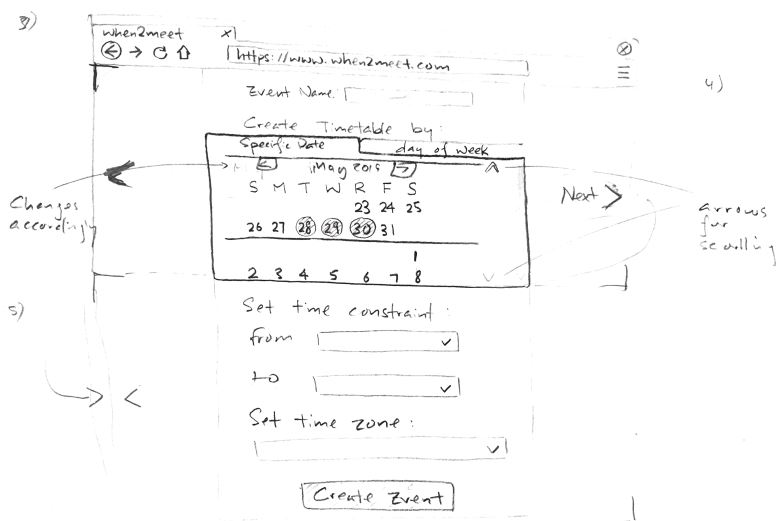 3)
when2meet x
https://www.when2meet.com
4)
Event Name:
Create Timetable by:
Specific Date
day of week
May 2019
S M T W R F S
23 24 25
26 27 28 29 30 31
1
2 3 4 5 6 7 8
Changes
accordingly
Next
arrows
for
scrolling
5)
Set time constraint:
from
to
Set time zone:
Create Event